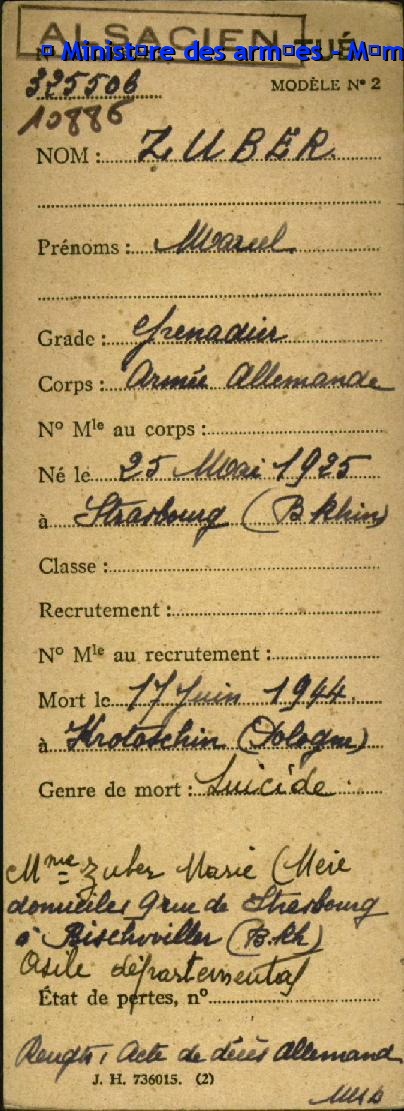 ALSACIEN TUÉ
Ministère des armées - Mém
325506
MODÈLE N° 2
10886
NOM : ZUBER
Prénoms : Marcel
Grade : Grenadier
Corps : Armée Allemande
N° Mle au corps :
Né le 25 Mai 1925
à Strasbourg (B Rhin)
Classe :
Recrutement :
N° Mle au recrutement :
Mort le 17 Juin 1944
à Krotoschin (Pologne)
Genre de mort : Suicide
Mme Zuber Marie (Mère
domiciliée 9 rue de Strasbourg
à Bischwiller (B.Rh)
Asile départemental
État de pertes, n°
Rengts : Acte de décès Allemand
J. H. 736015. (2)